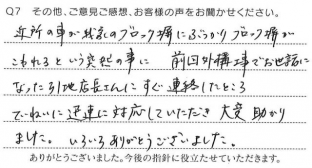 Q7 その他、ご意見ご感想、お客様の声をお聞かせください。
近所の車が我家のブロック塀にぶつかりブロック塀が
こわれるという突然の事に 前回外構工事でお世話に
なった 地店長さんにすぐ連絡したところ
てーねいに迅速に対応していただき 大変 助かり
ました。いろいろありがとうございました。
ありがとうございました。今後の指針に役立たせていただきます。